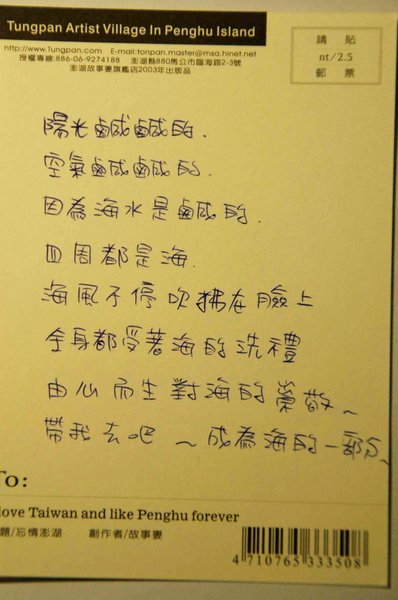 Tungpan Artist Village In Penghu Island
http://www.Tungpan.com E-mail:tonpan.master@msa.hinet.net
授權專線:886-06-9274188 澎湖縣880馬公市臨海路2-3號
澎湖故事妻旗艦店2003年出版品
請貼
nt/2.5
郵票
陽光鹹鹹的.
空氣鹹鹹的.
因為海水是鹹的.
四周都是海.
海風不停吹拂在臉上
全身都受著海的洗禮
由心而生對海的崇敬~
帶我去吧~成為海的一部分~
To:
love Taiwan and like Penghu forever
題/忘情澎湖 創作者/故事妻
4 710765 333508